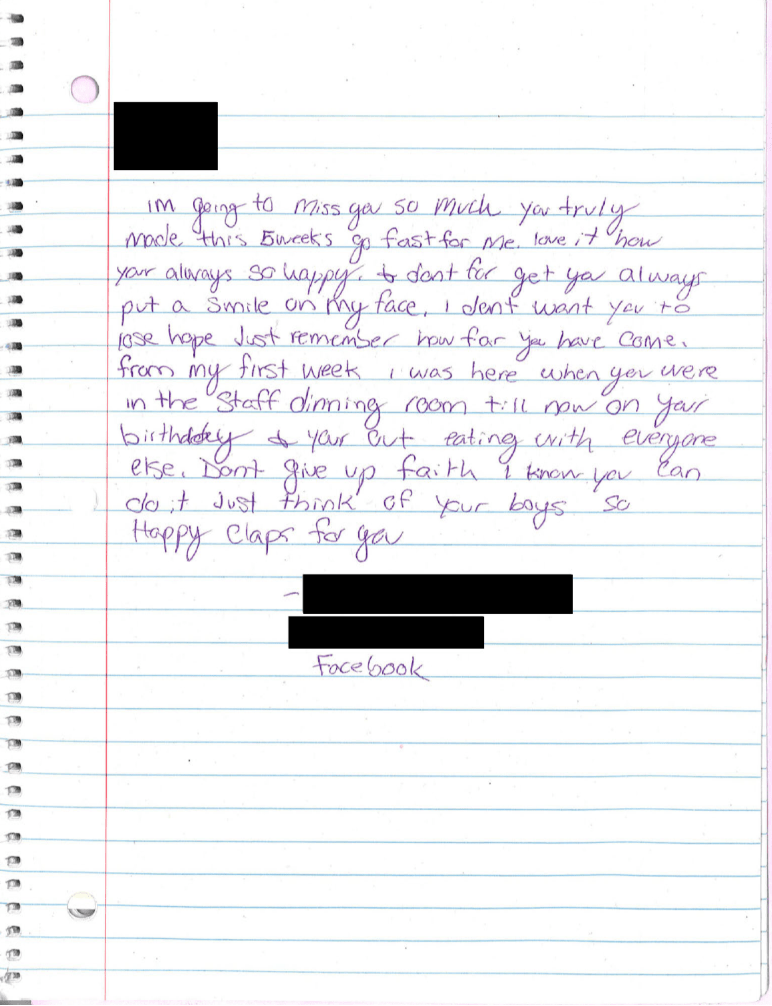 im going to miss you so much you truly
made this 5weeks go fast for me. love it how
your always so happy. & dont for get you always
put a smile on my face, i dont want you to
lose hope Just remember how far you have come.
from my first week i was here when you were
in the staff dinning room till now on your
birthday & your out eating with everyone
else. Dont give up faith i know you can
do it just think of your boys so
Happy Claps for you
-
Facebook